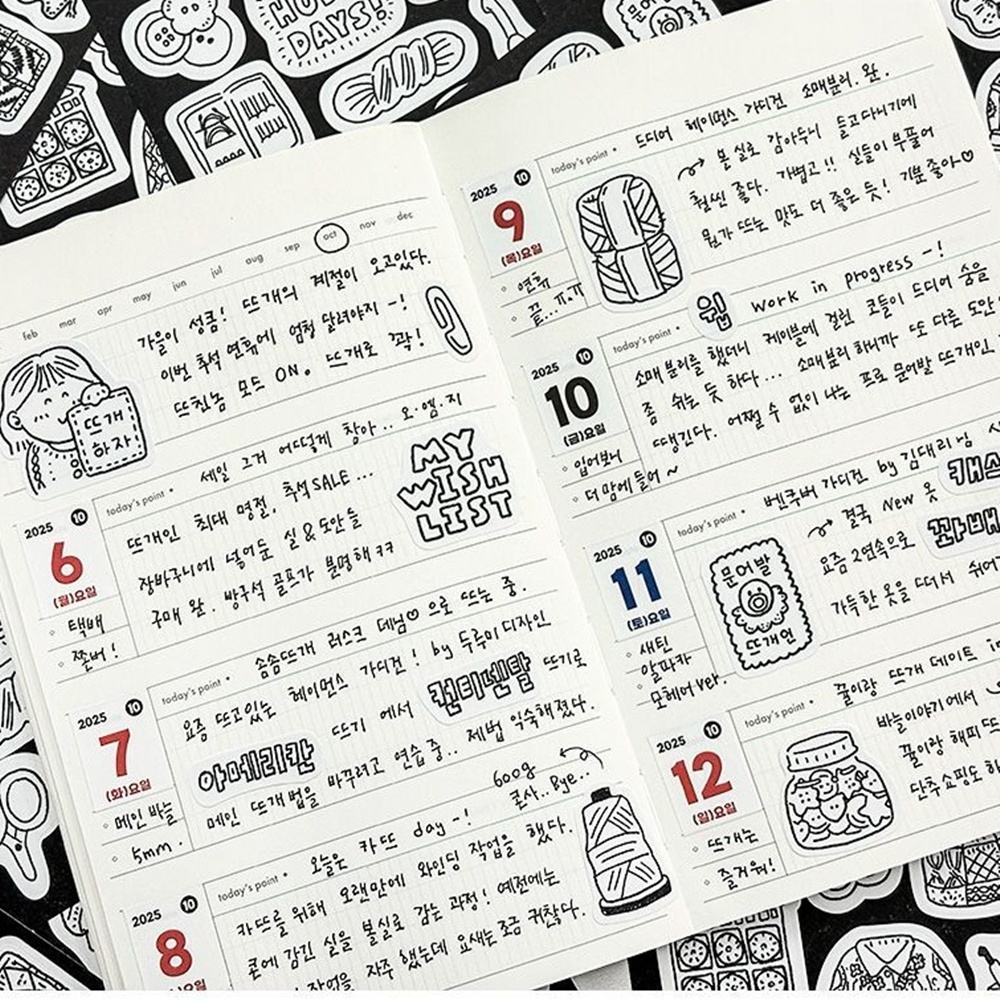 HOLI
DAYS!
문어발
feb mar apr may jun jul aug sep oct nov dec
가을이 성큼! 뜨개의 계절이 오고있다.
이번 추석 연휴에 엄청 달려야지-!
뜨친놈 모드 ON. 뜨개로 꽉!
뜨개
하자
2025 10
6
(월)요일
택배
쫄버!
today's point • 세일 그거 어떻게 참아.. 오.엠.지
뜨개인 최대 명절, 추석SALE...
장바구니에 넣어둔 실&도안들
구매 완. 방구석 골프가 분명해ㅋㅋ
MY
WISH
LIST
2025 10
7
(화)요일
메인 바늘
5mm.
today's point • 솜솜뜨개 러스크 데님♡으로 뜨는 중.
요즘 뜨고있는 헤이먼스 가디건! by 두루미디자인
아메리칸 뜨기 에서 컨티넨탈 뜨기로
메인 뜨개법을 바꾸려고 연습 중.. 제법 익숙해졌다.
600g
콘사.. Bye..
2025 10
8
today's point • 오늘은 카뜨 day-!
카뜨를 위해 오랜만에 와인딩 작업을 했다.
콘에 감긴 실을 볼실로 감는 과정! 예전에는
작업을 자주 했는데 요새는 조금 귀찮다.
2025 10
9
(목)요일
연휴
끝...ㅠ.ㅠ
today's point • 드디어 헤이먼스 가디건 소매분리. 완.
볼실로 감아두니 들고다니기에
훨씬 좋다. 가볍고!! 실들이 부풀어
뭔가 뜨는 맛도 더 좋은 듯! 기분좋아♡
2025 10
10
(금)요일
입어보니
더 맘에 들어~
today's point • 웝 work in progress -!
소매 분리를 했더니 케이블에 걸린 코들이 드디어 숨을
좀 쉬는 듯 하다... 소매분리 하니까 또 다른 도안
땡긴다. 어쩔 수 없이 나는 프로 문어발 뜨개인.
2025 10
11
(토)요일
새틴
알파카
모헤어 ver.
today's point • 벤쿠버 가디건 by 김대리님
결국 New 옷 캐스
요즘 2연속으로 꽈배
가득한 옷을 떠서 쉬어
문어발
뜨개인
2025 10
12
(일)요일
뜨개는
즐거워!
today's point • 꿀이랑 뜨개 데이트 in
바늘이야기에서
꿀이랑 해피뜨
단추쇼핑도 하